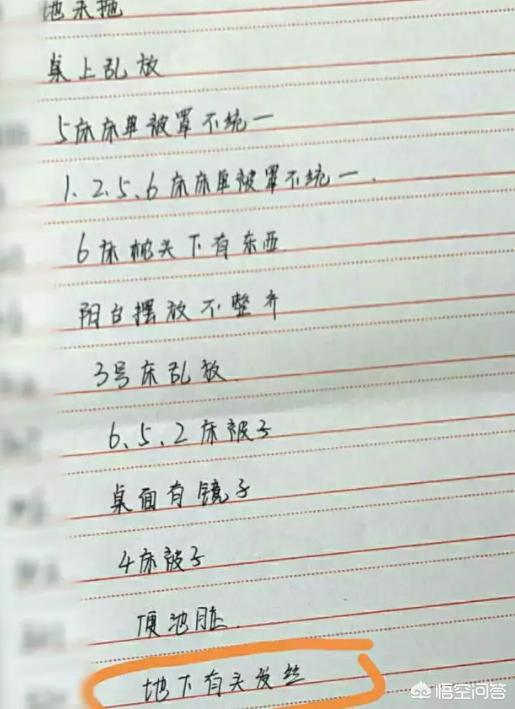 地未拖
桌上乱放
5床床单被罩不统一
1.2.5.6床床单被罩不统一.
6床枕头下有东西
阳台摆放不整齐
3号床乱放.
6、5、2床被子
桌面有镜子
4床被子
池脏.
地下有头发丝
悟空问答